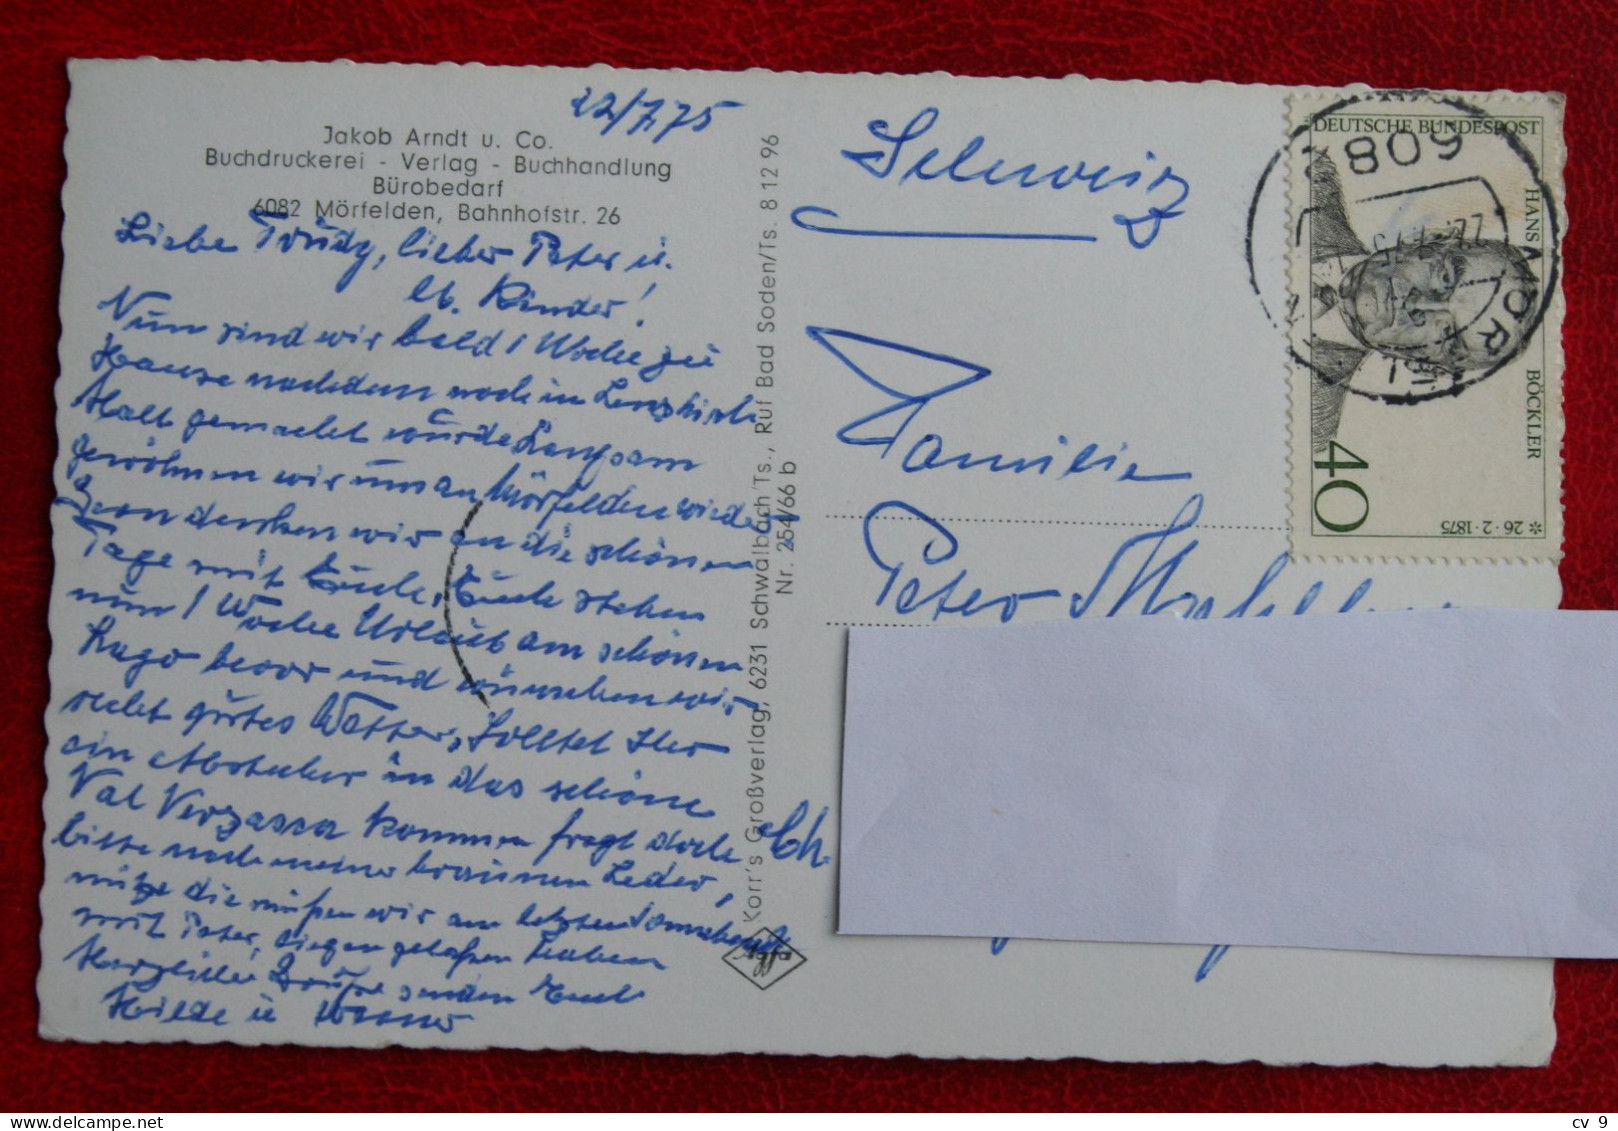 22/7.75
Jakob Arndt u. Co.
Buchdruckerei - Verlag - Buchhandlung
Bürobedarf
6082 Mörfelden, Bahnhofstr. 26
Liebe Trudy, lieber Peter u.
lb. Kinder!
Nun sind wir bald 1 Woche zu
Hause nachdem noch in Lenzkirch
Halt gemacht wurde. Langsam
gewöhnen wir uns an Mörfelden wieder
Gern denken wir an die schönen
Tage mit Euch, Euch stehen
nun 1 Woche Urlaub am schönen
Lago bevor und wünschen wir
recht gutes Wetter, Solltet Ihr
ein Abstecher in das schöne
Val Verzasca kommen fragt doch
bitte nach meiner braunen Leder,
mütze die müßen wir am letzten Sonnabend
mit Peter, liegen gelaßen haben
Herzliche Grüße senden Euch
Hilde u
Korr's Großverlag, 6231 Schwalbach/Ts., Ruf Bad Soden/Ts. 8 12 96
Nr. 254/66 b
Schweiz
Familie
Peter
Ch
DEUTSCHE BUNDESPOST
HANS BÖCKLER
* 26·2·1875
40
6082 MÖRFELDEN
22.-7.75